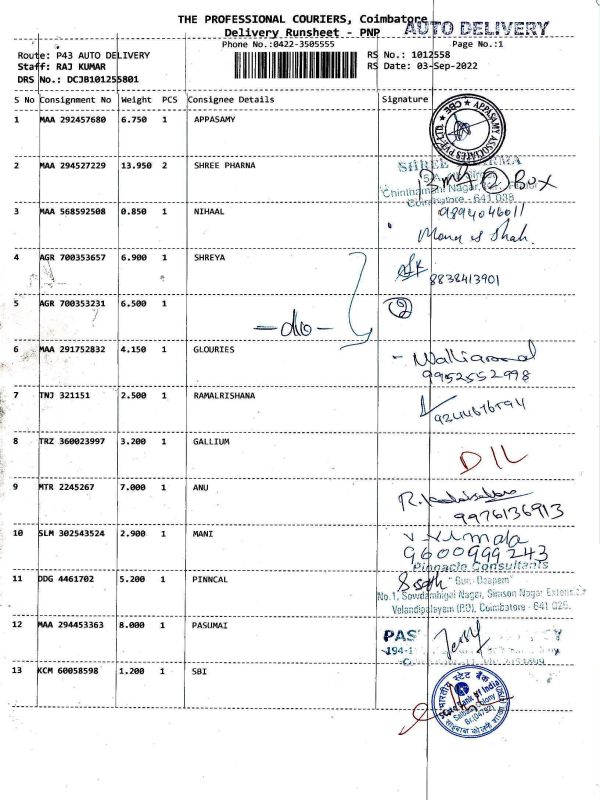 THE PROFESSIONAL COURIERS, Coimbatore
AUTO DELIVERY
Delivery Runsheet - PNP
Phone No.:0422-3505555
Page No.:1
Route: P43 AUTO DELIVERY
RS No.: 1012558
Staff: RAJ KUMAR
RS Date: 03-Sep-2022
DRS No.: DCJB101255801
S No Consignment No Weight PCS Consignee Details Signature
1 MAA 292457680 6.750 1 APPASAMY
APPASAMY ASSOCIATES PVT. LTD. CBE
2 MAA 294527229 13.950 2 SHREE PHARNA
SHREE PHARMA
2 Box
Chinthamani Nagar,
Coimbatore - 641 038
3 MAA 568592508 0.850 1 NIHAAL
9894046011
Shah.
4 AGR 700353657 6.900 1 SHREYA
8838413901
5 AGR 700353231 6.500 1
2
- do -
6 MAA 291752832 4.150 1 GLOURIES
9952552998
7 TNJ 321151 2.500 1 RAMALRISHANA
8 TRZ 360023997 3.200 1 GALLIUM
D/L
9 MTR 2245267 7.000 1 ANU
9976136913
10 SLM 302543524 2.900 1 MANI
V. Vimala
9600999243
11 DDG 4461702 5.200 1 PINNCAL
Pinnacle Consultants
No.1, Sowdambigai Nagar, Simson Nagar Extens.
Velandipalayam (P.O), Coimbatore - 641 025.
12 MAA 294453363 8.000 1 PASUMAI
PAS
13 KCM 60058598 1.200 1 SBI
भारतीय स्टेट बैंक
State Bank of India
Colony
साईबाबा कॉलोनी शाखा